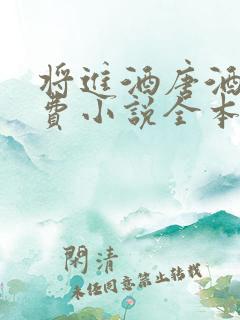 将进酒唐酒
费小说全本
閑清
未经同意禁止转载